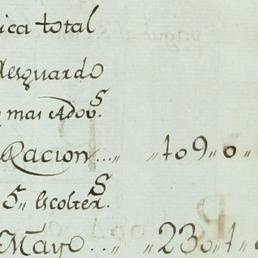 ica total
Resguardo
y mas Adov.s
Racion... „ to9 „ o „
5„ Escolter.s
Mayo... „ 230 „ t „